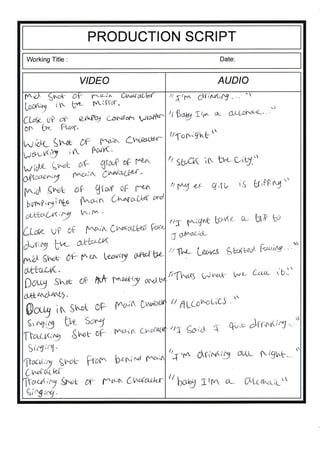 PRODUCTION SCRIPT
Working Title :
Date:
VIDEO
AUDIO
Mid Shot of main Character
looking in the mirror.
"I'm drinking..."
Close up of empty London water
on the floor.
"Baby I'm a alcoholic..."
Wide Shot of Main Character
walking in Park.
"Tonight"
Wide Shot of group of men
approaching main Character.
"Stuck in the City"
Mid Shot of group of men
bumping into main Character and
attacking him.
"My ex girl is tripping"
Close up of Main Characters face
during the attack
"I might take a trip to
Jamaica
Mid Shot of men leaving after the
attack.
"The Leaves Started falling..."
Dolly Shot of AA meeting and the
attendents.
"Thats what we call it."
Dolly in Shot of main Character
Singing the Song
"Alcoholics..."
Tracking Shot of main Character
Singing.
"I Said I quit drinking..."
Tracking Shot from behind main
Character
"I'm drinking all night..."
Tracking Shot of main Character
Singing.
"baby I'm a alcoholic"